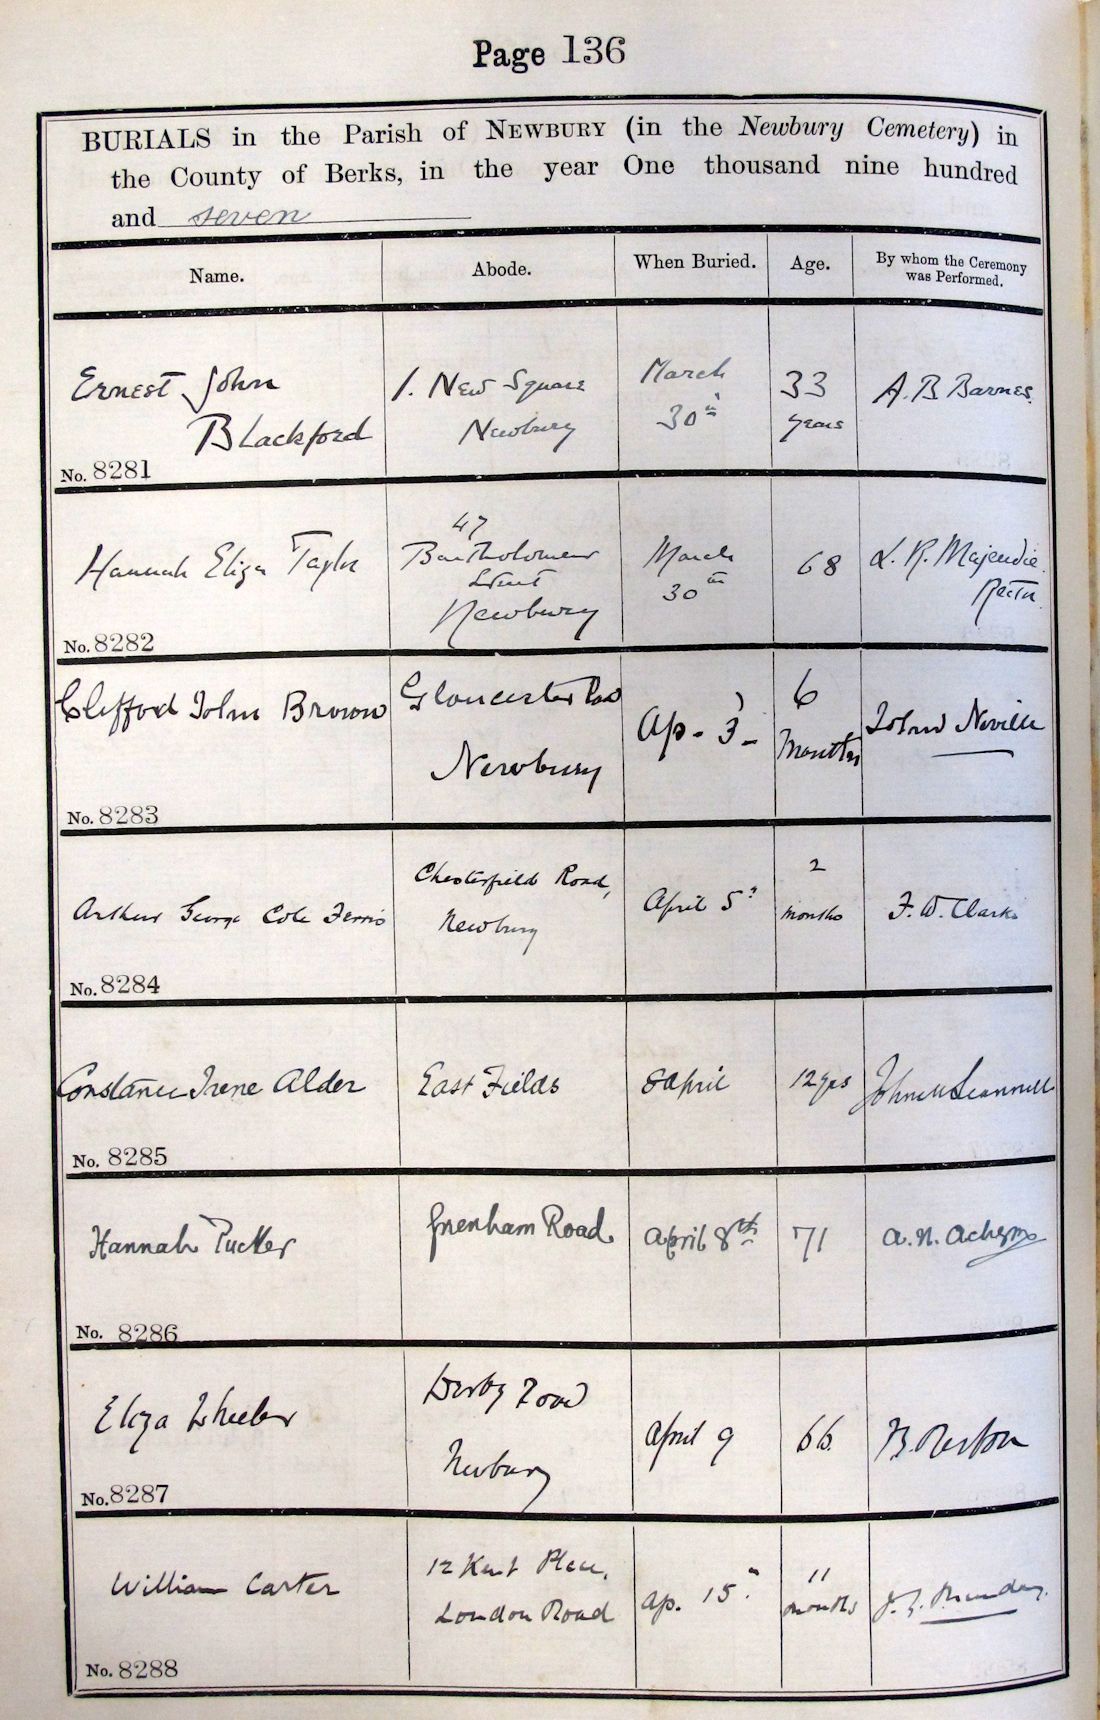 Page 136
BURIALS in the Parish of NEWBURY (in the Newbury Cemetery) in
the County of Berks, in the year One thousand nine hundred
and seven
Name. Abode. When Buried. Age. By whom the Ceremony was Performed.
Ernest John 1. New Square March 33 A. B Barnes.
Blackford Newbury 30th years
No. 8281
47
Hannah Eliza Taylor Bartholomew March 68 L. R. Majendie
Street 30th Rector.
Newbury
No. 8282
Clifford John Brown Gloucester Road Ap. 3 6 John Neville
Newbury Months
No. 8283
Chesterfield Road, 2
Arthur George Cole Ferris Newbury April 5 months F. W. Clarke
No. 8284
Constance Irene Alder East Fields 8 April 12 yrs
No. 8285
Hannah Tucker Greenham Road April 8th 71 A. N.
No. 8286
Derby Road
Eliza Wheeler April 9 66.
Newbury
No. 8287
12 Kent Place, 11
William Carter London Road Ap. 15 months
No. 8288